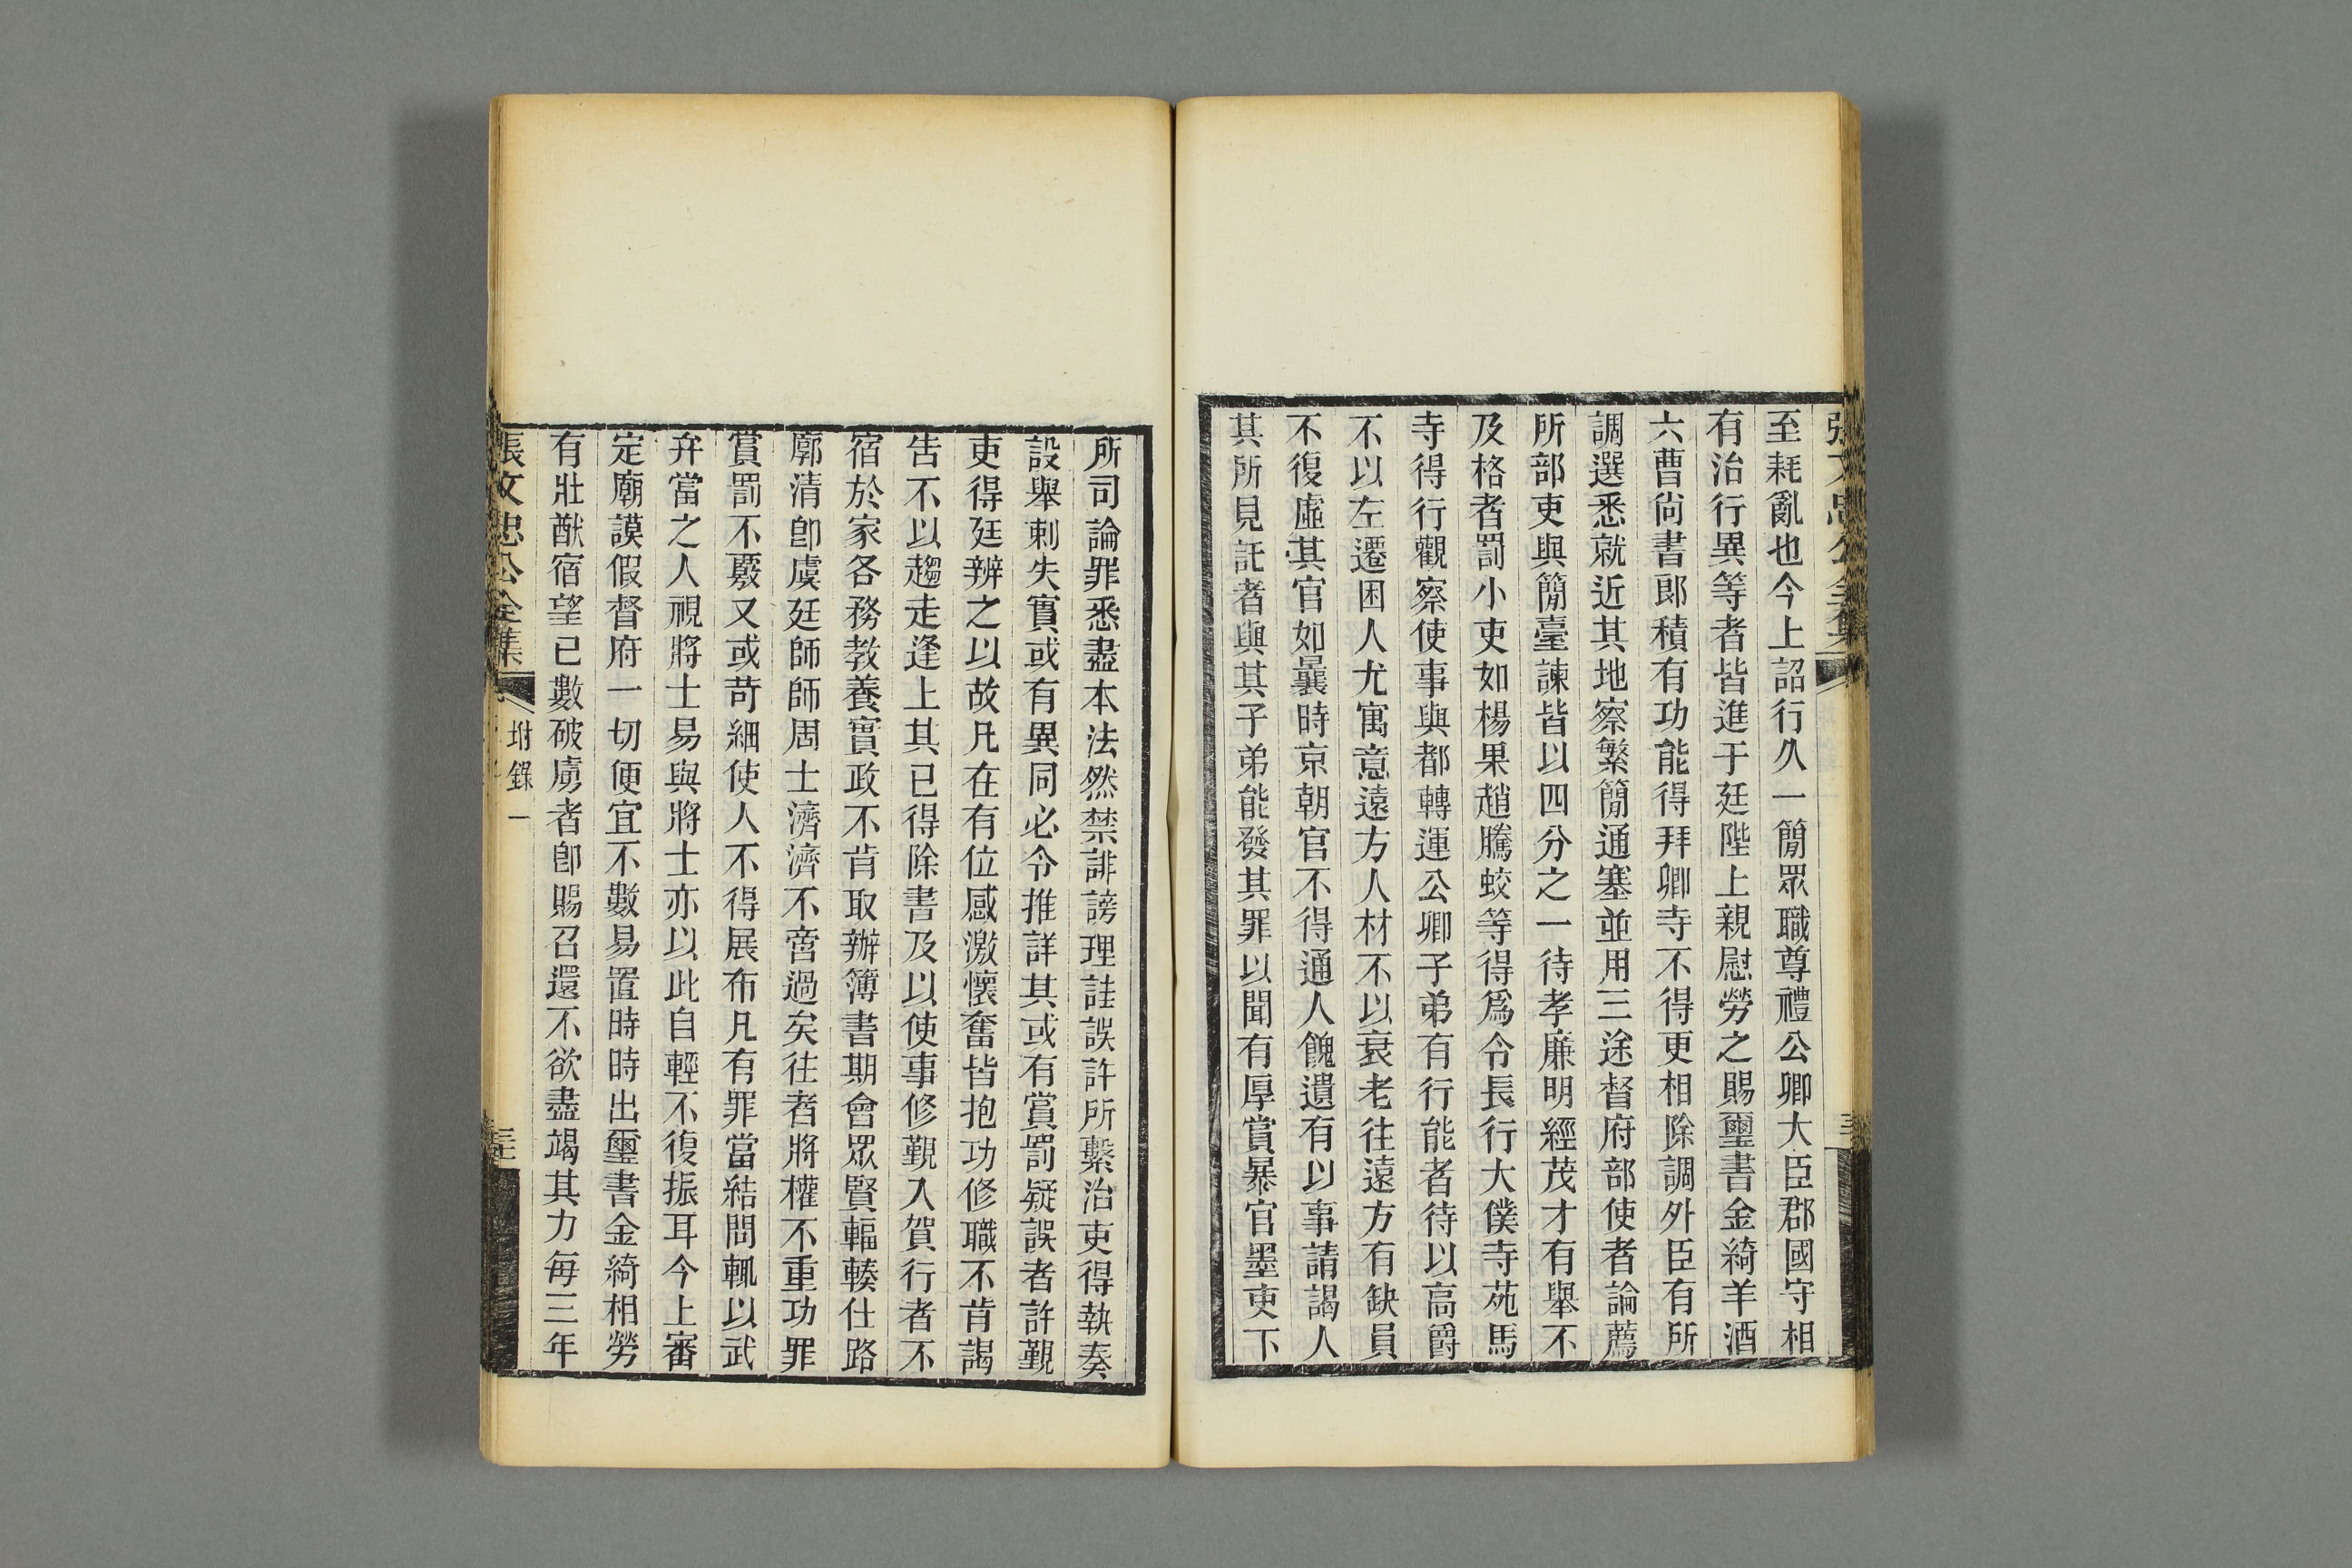 至耗亂也今上詔行久一簡眾職尊禮公卿大臣郡國守相
有治行異等者皆進于廷陛上親慰勞之賜璽書金綺羊酒
六曹尚書郎積有功能得拜卿寺不得更相除調外臣有所
調選悉就近其地察繁簡通塞並用三途督府部使者論薦
所部吏與簡臺諫皆以四分之一待孝廉明經茂才有舉不
及格者罰小吏如楊果趙騰蛟等得爲令長行大僕寺苑馬
寺得行觀察使事與都轉運公卿子弟有行能者待以高爵
不以左遷困人尤寓意遠方人材不以衰老往遠方有缺員
不復虛其官如曩時京朝官不得通人餽遺有以事請謁人
其所見託者與其子弟能發其罪以聞有厚賞暴官墨吏下
所司論罪悉盡本法然禁誹謗理詿誤許所繫治吏得執奏
設舉刺失實或有異同必令推詳其或有賞罰疑誤者許覲
吏得廷辨之以故凡在有位感激懷奮皆抱功修職不肯謁
告不以趨走逢上其已得除書及以使事修覲入賀行者不
宿於家各務教養實政不肯取辦簿書期會眾賢輻輳仕路
廓清卽虞廷師師周士濟濟不啻過矣往者將權不重功罪
賞罰不覈又或苛細使人不得展布凡有罪當結問輒以武
弁當之人視將士易與將士亦以此自輕不復振耳今上審
定廟謨假督府一切便宜不數易置時時出璽書金綺相勞
有壯猷宿望已數破虜者卽賜召還不欲盡竭其力每三年
張文忠公全集
坿錄一